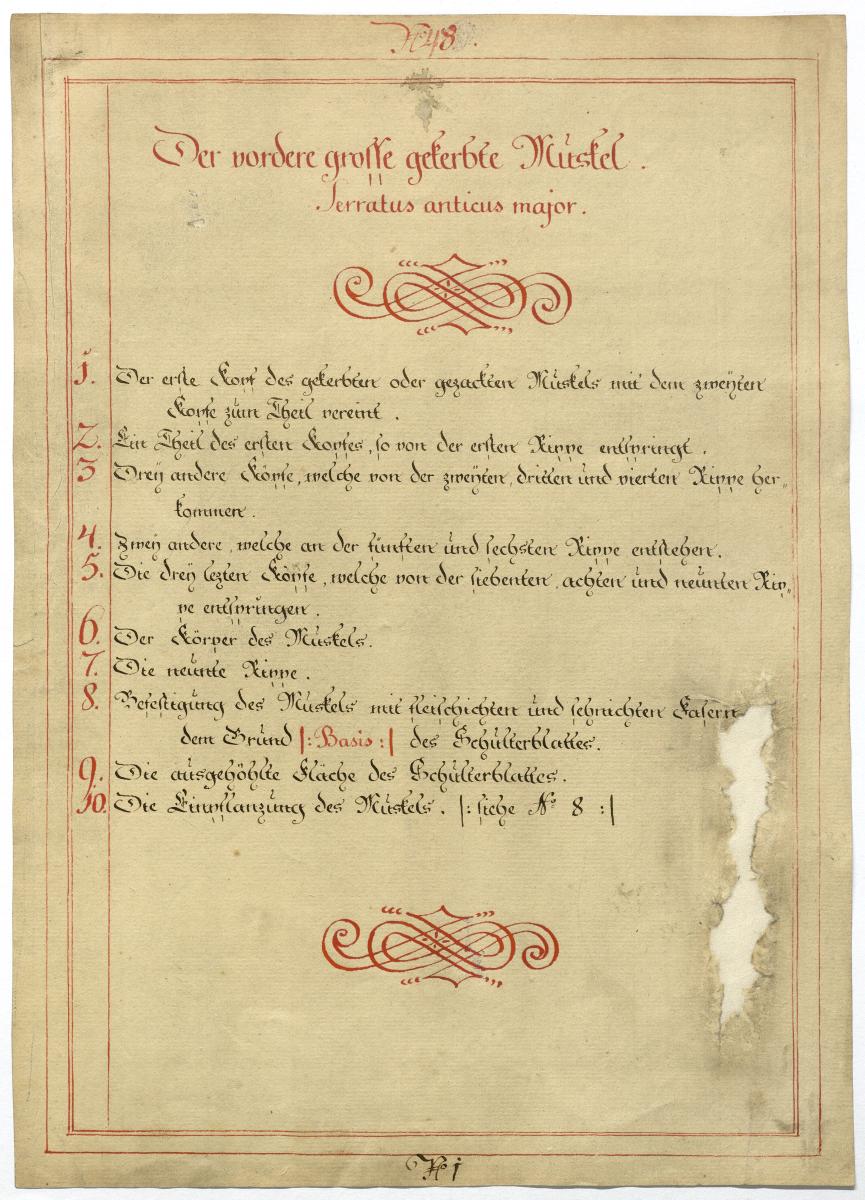 No 48.
Der vordere grosse gekerbte Muskel.
Serratus anticus major.
1. Der erste Kopf des gekerbten oder gezackten Muskels mit dem zweÿten
Kopfe zum Theil vereint.
2. Ein Theil des ersten Kopfes, so von der ersten Rippe entspringt.
3 Dreÿ andere Köpfe, welche von der zweÿten, dritten und vierten Rippe her„
kommen.
4. Zweÿ andere, welche an der fünften und sechsten Rippe entstehen.
5. Die dreÿ lezten Köpfe, welche von der siebenten, achten und neunten Rip„
pe entspringen.
6. Der Körper des Muskels.
7. Die neunte Rippe.
8. Befestigung des Muskels mit fleischichten und sehnichten Fasern
dem Grund |: Basis :| des Schulterblattes.
9. Die ausgehöhlte Fläche des Schulterblattes.
10. Die Einpflanzung des Muskels. |: siehe No 8 :|
No 1